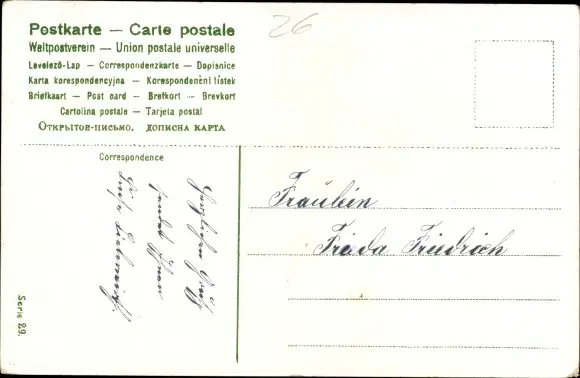 26
Postkarte — Carte postale
Weltpostverein — Union postale universelle
Levelező-Lap — Correspondenzkarte — Dopisnice
Karta korespondencyjna — Korespondenční lístek
Briefkaart — Post card — Brefkort — Brevkort
Cartolina postale — Tarjeta postal
Открытое-письмо. дописна карта
Correspondence
Fräulein
Frieda Friedrich
Herzlichen Gruß
sendet Ihnen
Serie 29.